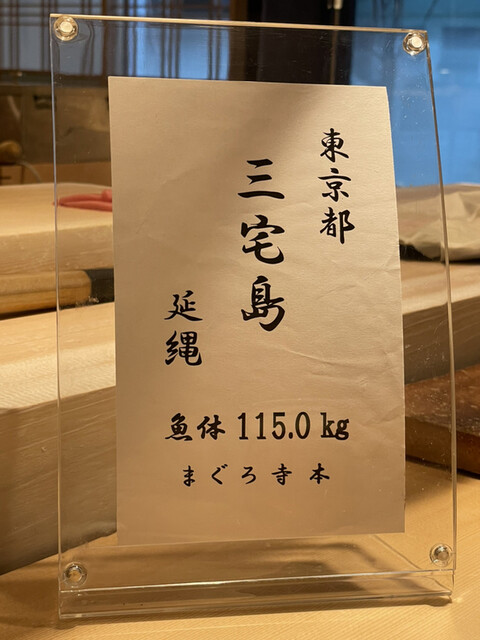 東京都
三宅島
延縄
魚体 115.0 kg
まぐろ寺本